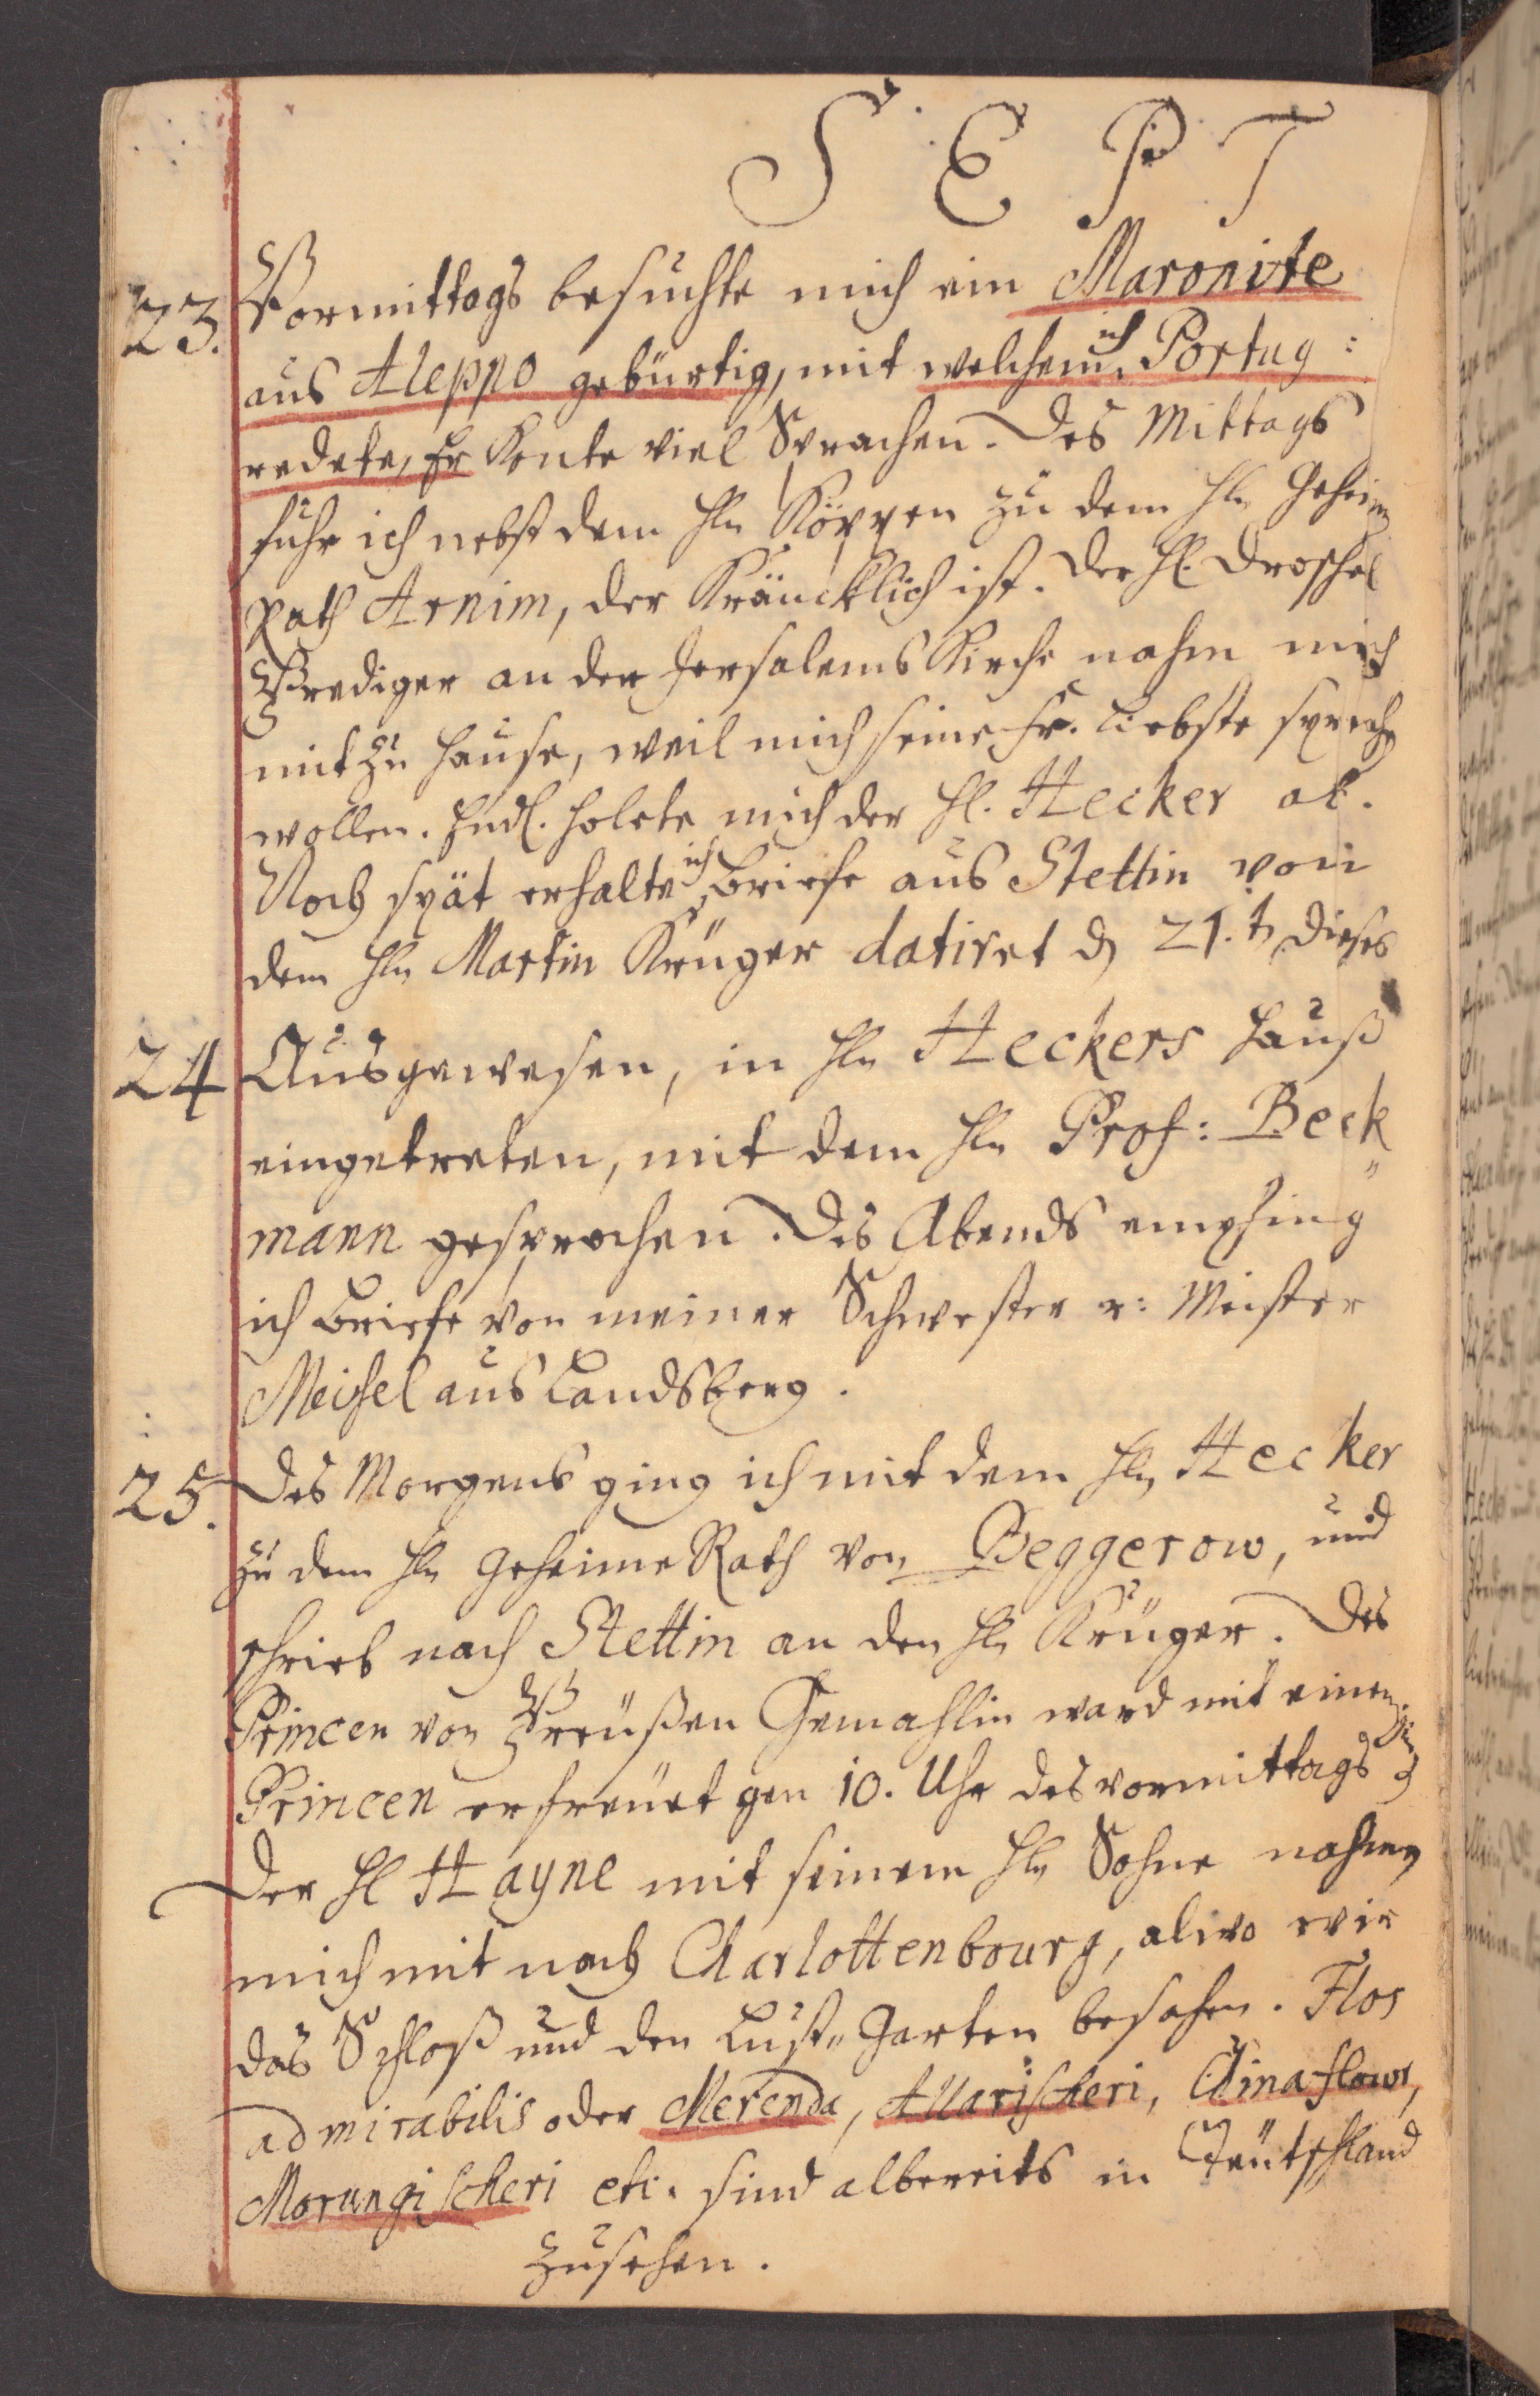 SEPT
23. Vormittags besuchte mich ein Maronite
aus Aleppo gebürtig, mit welchem ich Portug:
redete, Er konte viel Sprachen. Des Mittags
fuhr ich nebst dem Hln Köppen zu dem Hln Geheim
Rath Arnim, der kräncklich ist. Der Hl. Droschel
Prediger an der Jersalems Kirche nahm mich
mit zu Hause, weil mich seine Fr. Liebste sprechen
wollen. Endl. holete mich der Hl. Hecker ab.
Noch spät erhalte ich Briefe aus Stettin von
dem Hln Martin Krüger datiret d 21.t dieses
24 Ausgewesen, in Hln Heckers Hauß
eingetreten, mit dem Hln Prof: Beck„
mann gesprochen. Des Abends empfing
ich Briefe von meiner Schwester v: Meister
Meisel aus Landsberg.
25. Des Morgens ging ich mit dem Hln Hecker
zu dem Hln Geheime Rath von Beggerow, und
schrieb nach Stettin an den Hln Krüger. Des
Princen von Preüßen Gemahlin ward mit einem
Princen erfreüet gen 10. Uhr des vormittags
Der Hl Hayne mit seinem Hln Sohne nahmen
mich mit nach Charlottenbourg, alwo wir
das Schloß und den Lust„Garten besahen. Flos
admirabilis oder Merenda, Attarischeri, Chinaflowr,
Morungischeri etc. sind albereits in Teütschland
zusehen.